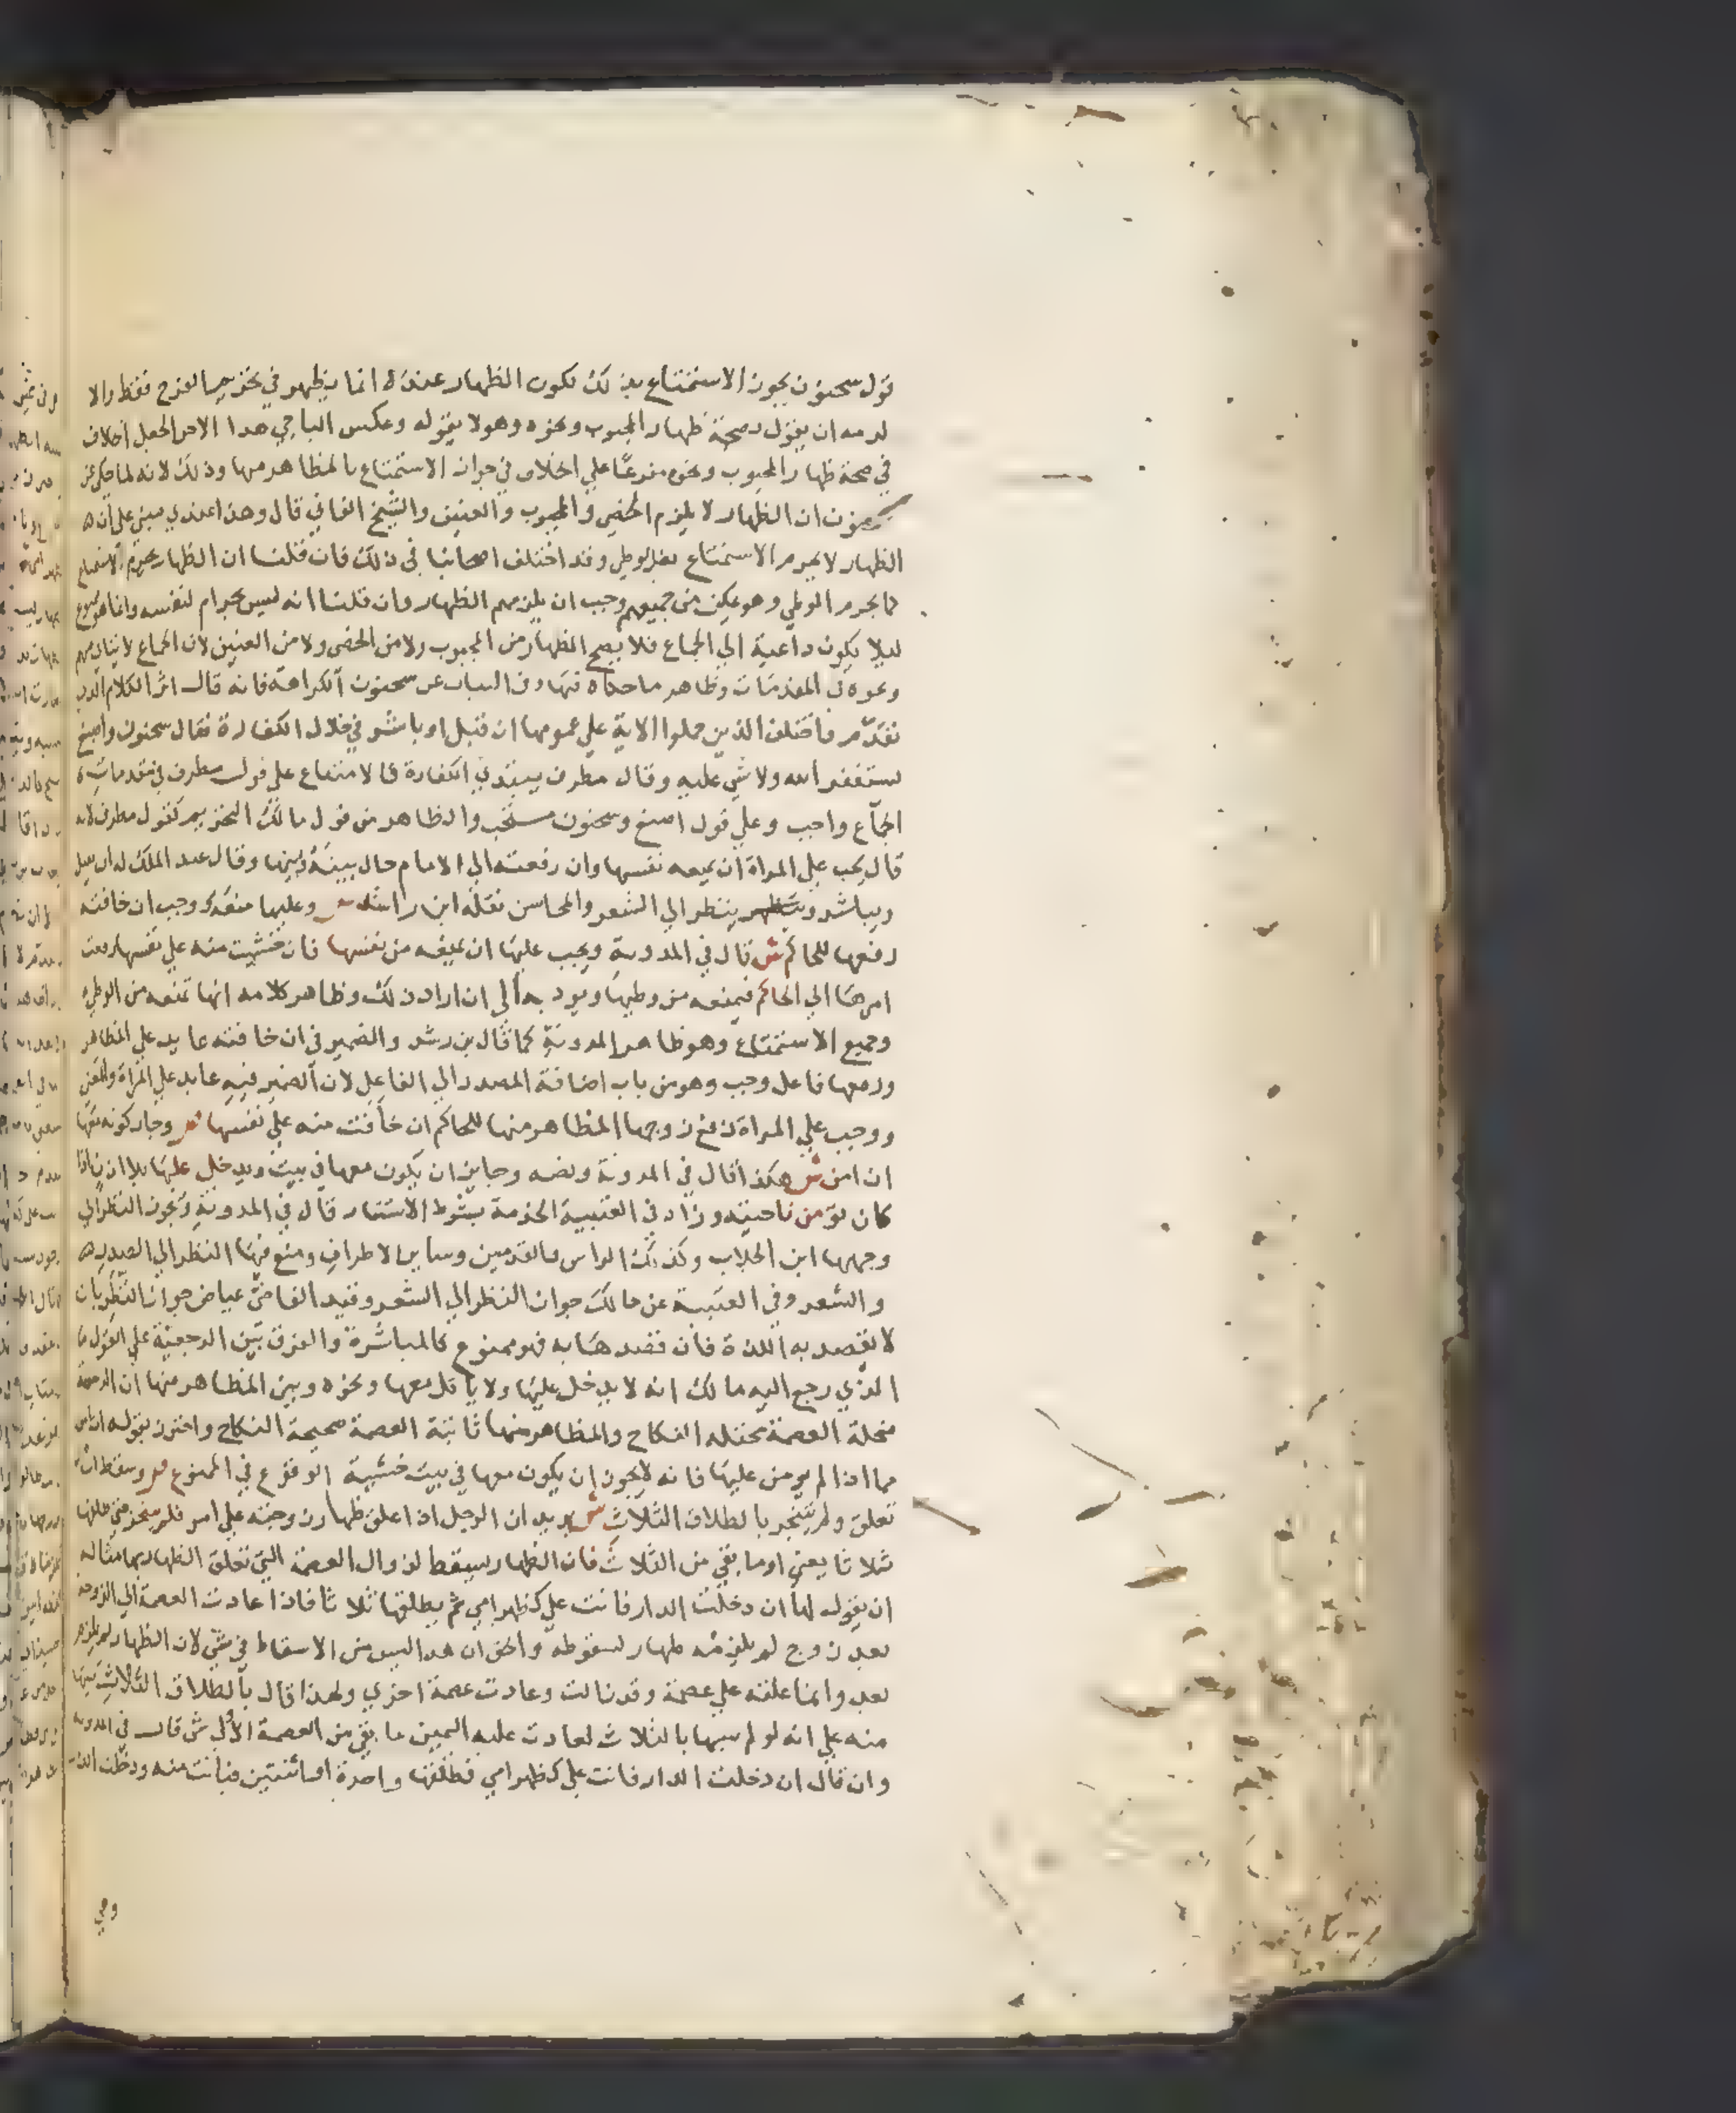 قول سحنون بجواز الاستمتاع بذلك لكون الظهار عنده انما يظهر في تحريم الفرج فقط والا
لزمه ان يقول بصحة ظهار المجبوب ونحوه وهو لا يقوله وعكس الباجي هذا الامر الجعل الخلاف
في صحة ظهار المجبوب ونحوه مفرعا علي الخلاف في جواز الاستمتاع بالمظاهر منها وذلك لانه لما حكي عن
سحنون ان الظهار لا يلزم الخصي والمجبوب والعنين والشيخ الفاني قال وهذا عندي مبني علي ان
الظهار لا يحرم الاستمتاع بغير الوطي وقد اختلف اصحابنا في ذلك فان قلنا ان الظهار يحرم الاستمتاع
كما يحرم الوطي وهو ممكن من جميعهم وجب ان يلزمهم الظهار وان قلنا انه ليس بحرام لنفسه وانما هو ممنوع
ليلا يكون داعية الي الجماع فلا يصح الظهار من المجبوب ولا من الخصي ولا من العنين لان الجماع لا يتاتي منهم
ونحوه في المقدمات وظاهر ما حكاه فيها وفي البيان عن سحنون الكراهة فانه قال اثر الكلام الذي
تقدم واختلف الذين حملوا الاية علي عمومها ان قبل او باشر في خلال الكفارة فقال سحنون واصبغ
يستغفر الله ولا شي عليه وقال مطرف يبتدي الكفارة فالامتناع علي قول مطرف في مقدمات
الجماع واجب وعلي قول اصبغ وسحنون مستحب والظاهر من قول مالك التحريم كقول مطرف لانه
قال يجب علي المراة ان تمنعه نفسها وان رفعته الي الامام حال بينه وبينها وقال عبد الملك له ان يقبل
ويباشر وينظر الي الشعر والمحاسن نقله ابن راشد ص وعليها منعه ووجب ان خافته
رفعها للحاكم ش قال في المدونة ويجب عليها ان تمنعه من نفسها فان خشيت منه علي نفسها رفعت
امرها الي الحاكم فيمنعه من وطيها ويودبه الي ان اراد ذلك وظاهر كلامه انها تمنعه من الوطي
وجميع الاستمتاع وهو ظاهر المدونة كما قال بن رشد والضمير في ان خافته عايد علي المظاهر
ورفعها فاعل وجب وهو من باب اضافة المصدر الي الفاعل لان الضمير فيه عايد علي المراة والمعني
ووجب علي المراة رفع زوجها المظاهر منها للحاكم ان خافت منه علي نفسها ص وجاز كونه معها
ان امن ش هكذا قال في المدونة ونصه وجايز ان يكون معها في بيت ويدخل عليها بلا اذن اذا
كان تومن ناحيته وزاد في العتبية الخدمة بشرط الاستتار قال في المدونة ويجوز النظر الي
وجهها ابن الجلاب وكذلك الراس والقدمين وساير الاطراف ومنع فيها النظر الي الصدر
والشعر وفي العتبية عن مالك جواز النظر الي الشعر وقيد القاضي عياض جواز النظر بان
لا يقصد به اللذة فان قصدها به فهو ممنوع كالمباشرة والفرق بين الرجعية علي القول
الذي رجع اليه مالك انه لا يدخل عليها ولا ياكل معها ونحوه وبين المظاهر منها ان الرجعية
منحلة العصمة مختلة النكاح والمظاهر منها ثابتة العصمة صحيحة النكاح واحترز بقوله ان امن
مما اذا لم يومن عليها فانه لا يجوز ان يكون معها في بيت خشية الوقوع في الممنوع ص وسقط ان
تعلق ولم يتنجز بالطلاق الثلاث ش يريد ان الرجل اذا علق ظهار زوجته علي امر فلم يتنجز حتي طلقها
ثلاثا يعني او ما بقي من الثلاث فان الظهار سيقط لزوال العصمة التي تعلق الظهار بها مثاله
ان يقول لها ان دخلت الدار فانت علي كظهر امي ثم يطلقها ثلاثا فاذا عادت العصمة الي الزوجة
بعد زوج لم يلزمه ظهار لسقوطه والحق ان هذا ليس من الاسقاط في شي لان الظهار لم يلزم
بعد وانما علقه علي عصمة وقد زالت وعادت عصمة اخري ولهذا قال بالطلاق الثلاث تنبيها
منه علي انه لو لم يبنها بالثلاث لعادت عليه اليمين ما بقي من العصمة الاول ش قال في المدونة
وان قال ان دخلت الدار فانت علي كظهر امي فطلقها واحدة او اثنتين فبانت منه ودخلت الدار
وهي